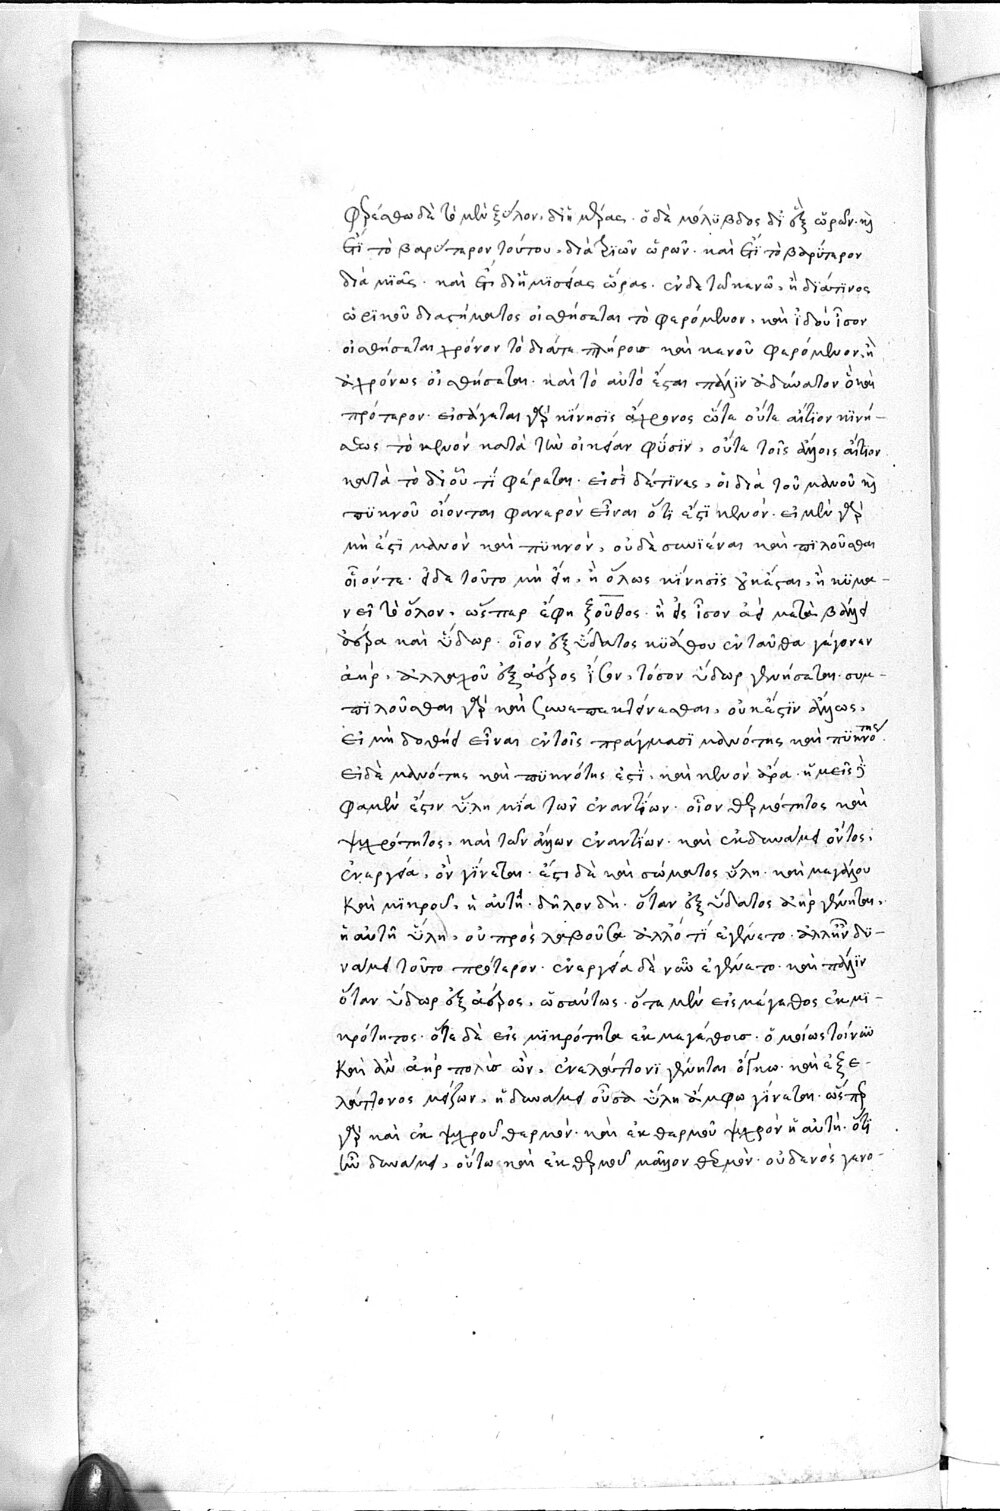 φερέσθω δὲ τὸ μὲν ξύλον, δι' ἡμέρας· ὁ δὲ μόλυβδος δι' ἓξ ὡρῶν· καὶ
ἔτι τὸ βαρύτερον τούτου, διὰ τριῶν ὡρῶν· καὶ ἔτι τὸ βαρύτερον
διὰ μιᾶς· καὶ ἔτι δι' ἡμισείας ὥρας· ἐν δὲ τῷ κενῷ, ἢ διά τινος
ὡρικοῦ διαστήματος οἰσθήσεται τὸ φερόμενον, καὶ ἰδοὺ ἴσον
οἰσθήσεται χρόνον τὸ διά τε πλήρους καὶ κενοῦ φερόμενον, ἢ
ἀχρόνως οἰσθήσεται· καὶ τὸ αὐτὸ ἔσται πάλιν ἀδύνατον ὃ καὶ
πρότερον· εἰσάγεται γὰρ κίνησις ἄχρονος ὥστε οὔτε αἴτιον κινή-
σεως τὸ κενὸν κατὰ τὴν οἰκείαν φύσιν, οὔτε τοῖς ἄλλοις αἴτιον
κατὰ τὸ δι' οὗ τι φέρεται· εἰσὶ δέ τινες, οἳ διὰ τοῦ μανοῦ καὶ
πυκνοῦ οἴονται φανερὸν εἶναι ὅτι ἐστὶ κενόν· εἰ μὲν γὰρ
μὴ ἐστὶ μανὸν καὶ πυκνόν, οὐδὲ συνιέναι καὶ πιλοῦσθαι
οἷόν τε· εἰ δὲ τοῦτο μὴ εἴη, ἢ ὅλως κίνησις οὐκ ἔσται, ἢ κυμα-
νεῖ τὸ ὅλον, ὥσπερ ἔφη ξοῦθος· ἢ εἰς ἴσον ἀεὶ μεταβάλλει
ἀέρα καὶ ὕδωρ· οἷον ἐξ ὕδατος κυάθου ἐνταῦθα γέγονεν
ἀήρ, ἀλλαχοῦ ἐξ ἀέρος ἴσου, τόσον ὕδωρ γενήσεται· συμ-
πιλοῦσθαι γὰρ καὶ συνεπεκτείνεσθαι, οὐκ ἔστιν ἄλλως,
εἰ μὴ δοθείη εἶναι ἐν τοῖς πράγμασι μανότης καὶ πυκνότης
εἰ δὲ μανότης καὶ πυκνότης ἐστὶ, καὶ κενὸν ἄρα· ἡμεῖς δὲ
φαμὲν ἔστιν ὕλη μία τῶν ἐναντίων· οἷον θερμότητος καὶ
ψυχρότητος, καὶ τῶν ἄλλων ἐναντίων· καὶ ἐκ δυνάμει ὄντος,
ἐνεργείᾳ ὂν γίνεται· ἔστι δὲ καὶ σώματος ὕλη καὶ μεγάλου
καὶ μικροῦ, ἡ αὐτή· δῆλον δή· ὅταν ἐξ ὕδατος ἀὴρ γένηται,
ἡ αὐτὴ ὕλη, οὐ προσλαβοῦσα ἄλλό τι ἐγένετο· ἀλλ' ἦν δυ-
νάμει τοῦτο πρότερον· ἐνεργείᾳ δὲ νῦν ἐγένετο· καὶ πάλιν
ὅταν ὕδωρ ἐξ ἀέρος, ὡσαύτως· ὁτὲ μὲν εἰς μέγεθος ἐκ μι-
κρότητος· ὁτὲ δὲ εἰς μικρότητα ἐκ μεγέθους· ὁμοίως τοίνυν
κἂν ἀὴρ πολὺς ὢν, ἐν ἐλάττονι γένηται ὄγκῳ· καὶ ἐξ ἐ-
λάττονος μείζων, ἡ δυνάμει οὖσα ὕλη ἄμφω γίνεται· ὥσπερ
γὰρ καὶ ἐκ ψυχροῦ θερμόν· καὶ ἐκ θερμοῦ ψυχρὸν ἡ αὐτή· ὅτι
ἦν δυνάμει, οὕτω καὶ ἐκ θερμοῦ μᾶλλον θερμόν· οὐδενὸς γενο-